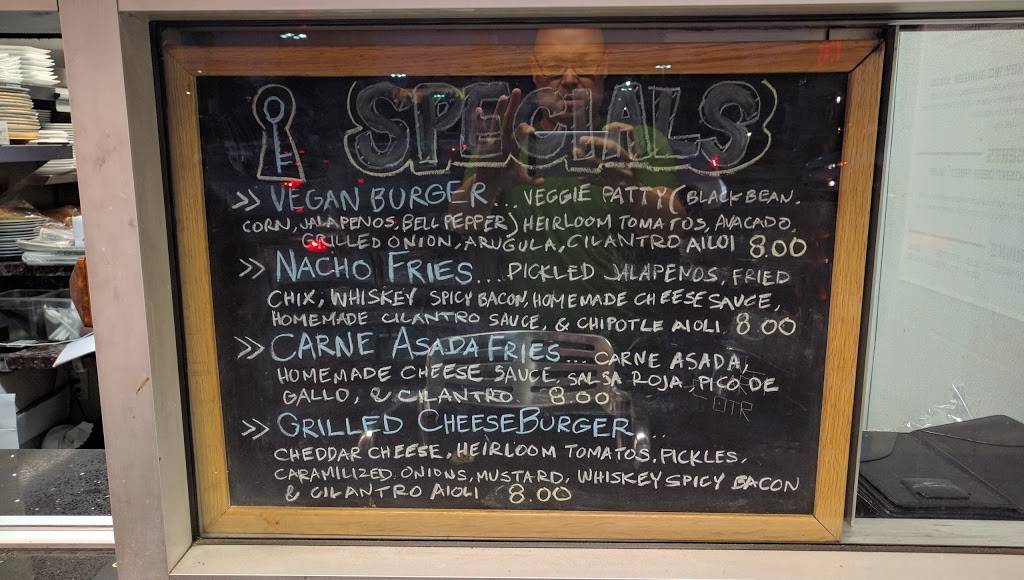 SPECIALS
>> VEGAN BURGER... VEGGIE PATTY (BLACK BEAN,
CORN, JALAPENOS, BELL PEPPER) HEIRLOOM TOMATOS, AVACADO,
GRILLED ONION, ARUGULA, CILANTRO AILOI 8.00
>> NACHO FRIES... PICKLED JALAPENOS, FRIED
CHIX, WHISKEY SPICY BACON, HOMEMADE CHEESE SAUCE,
HOMEMADE CILANTRO SAUCE, & CHIPOTLE AIOLI 8.00
>> CARNE ASADA FRIES... CARNE ASADA,
HOMEMADE CHEESE SAUCE, SALSA ROJA, PICO DE
GALLO, & CILANTRO 8.00
>> GRILLED CHEESEBURGER...
CHEDDAR CHEESE, HEIRLOOM TOMATOS, PICKLES,
CARAMILIZED ONIONS, MUSTARD, WHISKEY SPICY BACON
& CILANTRO AIOLI 8.00